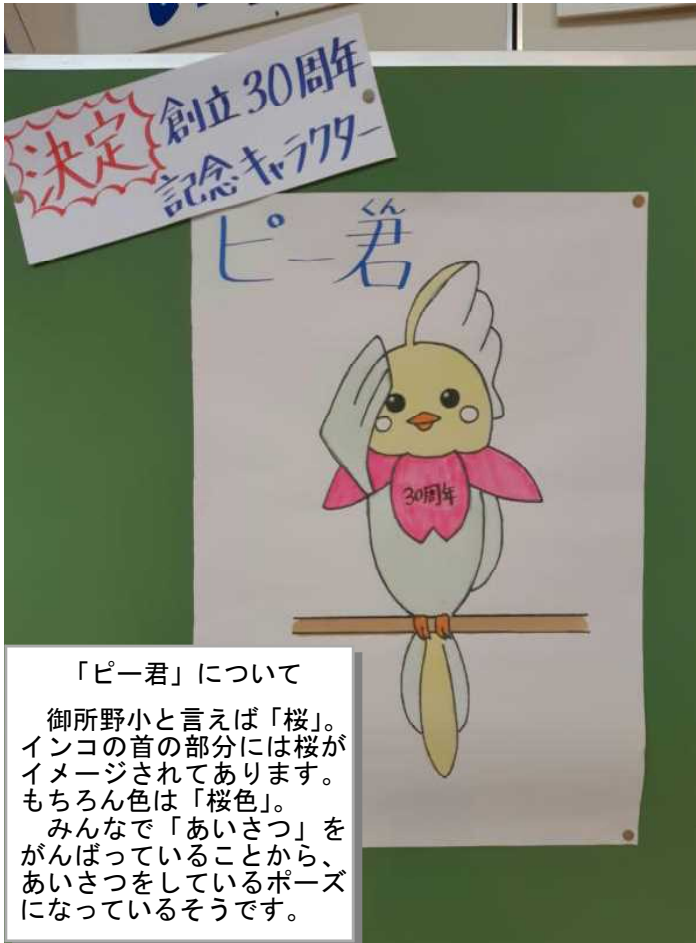 決定
創立30周年
記念キャラクター
くん
ピー君
30周年
「ピー君」について
御所野小と言えば「桜」。
インコの首の部分には桜が
イメージされてあります。
もちろん色は「桜色」。
みんなで「あいさつ」を
がんばっていることから、
あいさつをしているポーズ
になっているそうです。